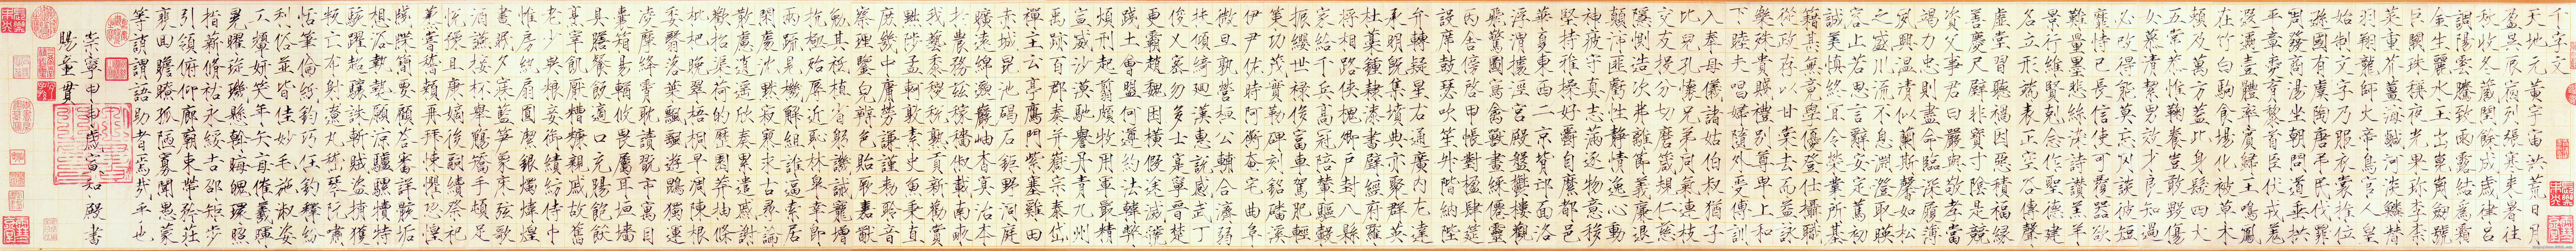 千字文
天地元黃宇宙洪荒日月
盈昃辰宿列張寒來暑往
秋收冬藏閏餘成歲律呂
調陽雲騰致雨露結爲霜
金生麗水玉出崑崗劒號
巨闕珠稱夜光果珍李柰
菜重芥薑海鹹河淡鱗潛
羽翔龍師火帝鳥官人皇
始制文字乃服衣裳推位
遜國有虞陶唐弔民伐罪
周發商湯坐朝問道垂拱
平章愛育黎首臣伏戎羌
遐邇壹體率賓歸王鳴鳳
在竹白駒食場化被草木
賴及萬方蓋此身髮四大
五常恭惟鞠養豈敢毀傷
女慕清潔男效才良知過
必改得能莫忘罔談彼短
靡恃己長信使可覆器欲
難量墨悲絲染詩讚羔羊
景行維賢剋念作聖德建
名立形端表正空谷傳聲
虛堂習聽禍因惡積福緣
善慶尺璧非寶寸陰是競
資父事君曰嚴與敬孝當
竭力忠則盡命臨深履薄
夙興溫凊似蘭斯馨如松
之盛川流不息淵澄取映
容止若思言辭安定篤初
誠美慎終宜令榮業所基
籍甚無竟學優登仕攝職
從政存以甘棠去而益詠
樂殊貴賤禮別尊卑上和
下睦夫唱婦隨外受傅訓
入奉母儀諸姑伯叔猶子
比兒孔懷兄弟同氣連枝
交友投分切磨箴規仁慈
隱惻造次弗離節義廉退
顛沛匪虧性靜情逸心動
神疲守真志滿逐物意移
堅持雅操好爵自縻都邑
華夏東西二京背邙面洛
浮渭據涇宮殿盤鬱樓觀
飛驚圖寫禽獸畫綵僊靈
丙舍傍啓甲帳對楹肆筵
設席鼓瑟吹笙升階納陛
弁轉疑星右通廣內左達
承明既集墳典亦聚羣英
杜稾鍾隸漆書壁經府羅
將相路俠槐卿戶封八縣
家給千兵高冠陪輦驅轂
振纓世祿侈富車駕肥輕
策功茂實勒碑刻銘磻溪
伊尹佐時阿衡奄宅曲阜
微旦孰營桓公輔合濟弱
扶傾綺迴漢惠說感武丁
俊乂密勿多士寔寧晉楚
更霸趙魏困橫假途滅虢
踐土會盟何遵約法韓弊
煩刑起翦頗牧用軍最精
宣威沙漠馳譽丹青九州
禹跡百郡秦并嶽宗泰岱
禪主云亭鴈門紫塞雞田
赤城昆池碣石鉅野洞庭
曠遠綿邈巖岫杳冥治本
於農務茲稼穡俶載南畝
我藝黍稷稅熟貢新勸賞
黜陟孟軻敦素史魚秉直
庶幾中庸勞謙謹勑聆音
察理鑒皃辨色貽厥嘉猷
勉其祗植省躬譏誡寵增
抗極殆辱近恥林皋幸即
兩疏見機解組誰逼索居
閑處沈默寂寥求古尋論
散慮逍遙欣奏累遣慼謝
歡招渠荷的歷園莽抽條
枇杷晚翠梧桐早凋陳根
委翳落葉飄颻遊鵾獨運
凌摩絳霄耽讀翫市寓目
囊箱易輶攸畏屬耳垣墻
具膳飡飯適口充腸飽飫
烹宰飢厭糟糠親戚故舊
老少異糧妾御績紡侍巾
帷房紈扇圓潔銀燭煒煌
晝眠夕寐藍筍象床弦歌
酒讌接杯舉觴矯手頓足
悅豫且康嫡後嗣續祭祀
蒸嘗稽顙再拜悚懼恐惶
牋牒簡要顧答審詳骸垢
想浴執熱願涼驢騾犢特
駭躍超驤誅斬賊盜捕獲
叛亡布射遼丸嵇琴阮嘯
恬筆倫紙鈞巧任釣釋紛
利俗並皆佳妙毛施淑姿
工顰妍笑年矢每催羲暉
晃曜琁璣懸斡晦魄環照
指薪脩祜永綏吉邵矩步
引領俯仰廊廟束帶矜莊
裴回瞻眺孤陋寡聞愚蒙
等誚謂語助者焉哉乎也
崇寧甲申歲宣和殿書
賜童貫